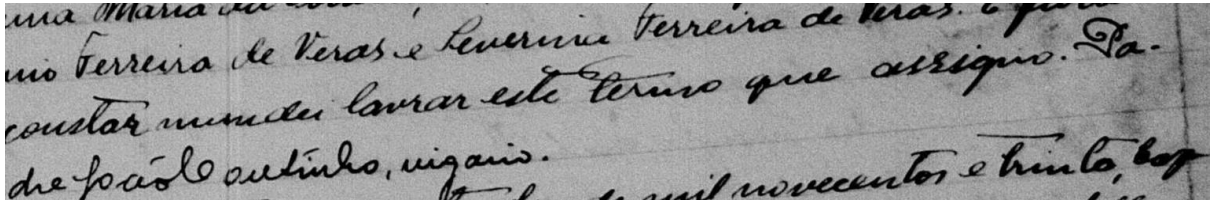 Maria da
Ferreira de Veras e Severina Ferreira de Veras. E para
constar mandei lavrar este termo que assigno. Pa-
dre João Coutinho, vigario.
de mil novecentos e trinta, bap